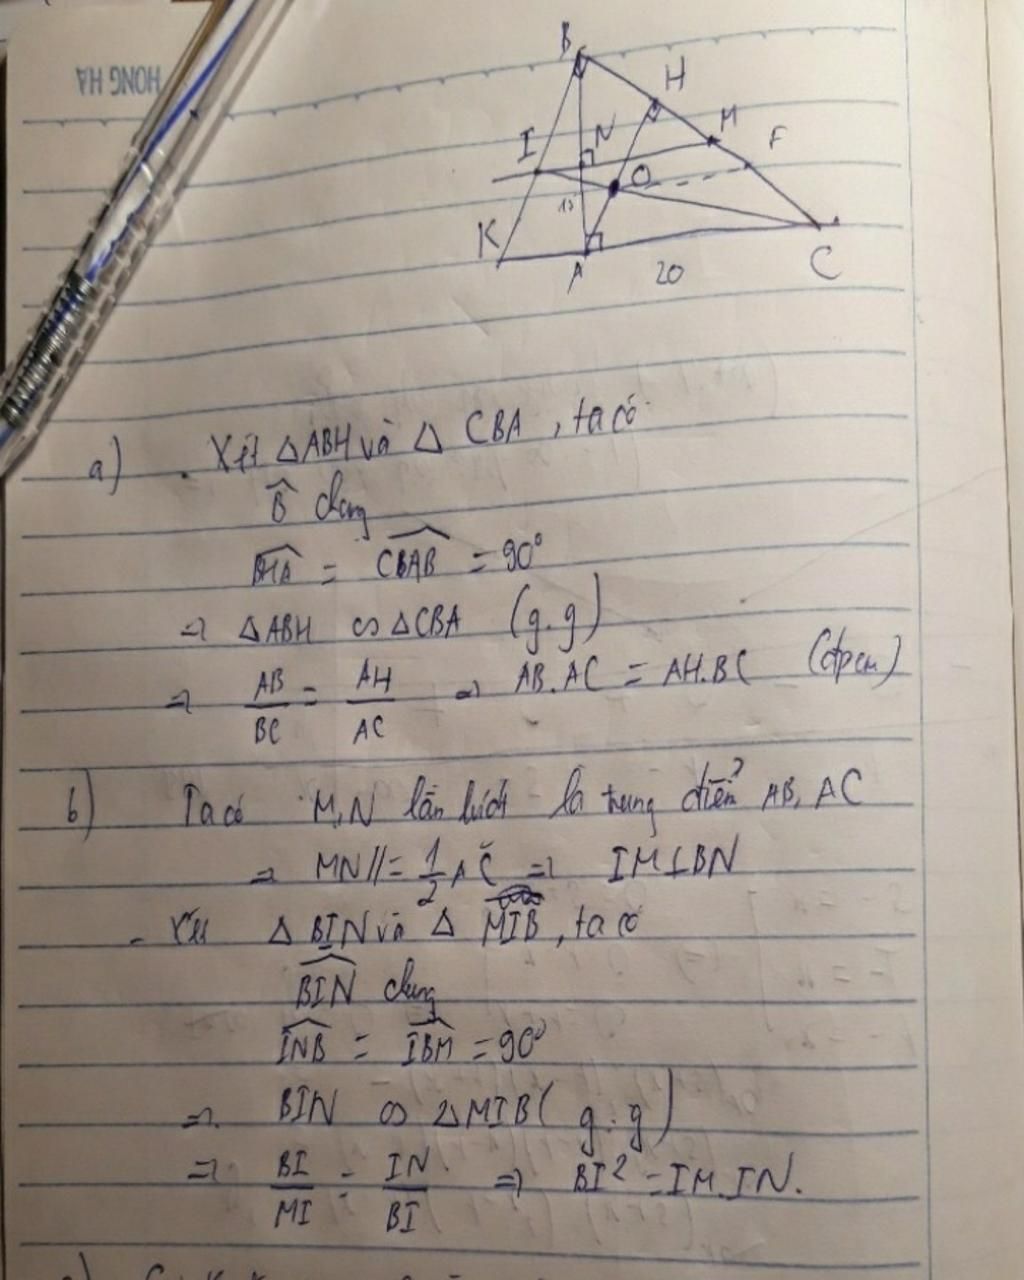 HONG HA
B
H
M
F
I
N
O
15
K
A
20
C
a) . Xét △ABH và △ CBA , ta có
B̂ chung
BHA = CBAB = 90°
=> △ABH ∽ △CBA (g.g)
=> AB/BC = AH/AC => AB.AC = AH.BC (đpcm)
b) Ta có M,N lần lượt là trung điểm AB, AC
=> MN//= 1/2 AC => IM⊥BN
- Xét △ BIN và △ MIB , ta có
BIN chung
INB = IBM = 90°
=> BIN ∽ △MIB ( g.g )
=> BI/MI = IN/BI => BI² = IM.IN.